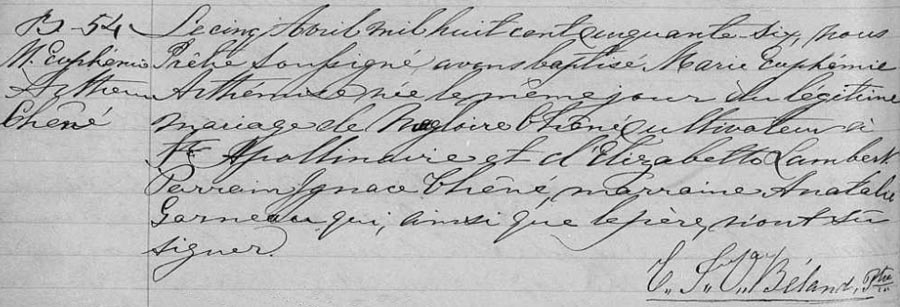 B-54
M. Euphémie
Arthém
Chêné
Le cinq Avril mil huit cent cinquante-six, nous
Prêtre soussigné avons baptisé Marie Euphémie
Arthémise née le même jour du légitime
mariage de Magloire Chêné cultivateur à
St Apollinaire et d'Elizabeth Lambert
Parrain Ignace Chêné, marraine Anatalie
Garneau qui, ainsi que le père, n'ont su
signer.
Béland, Ptre